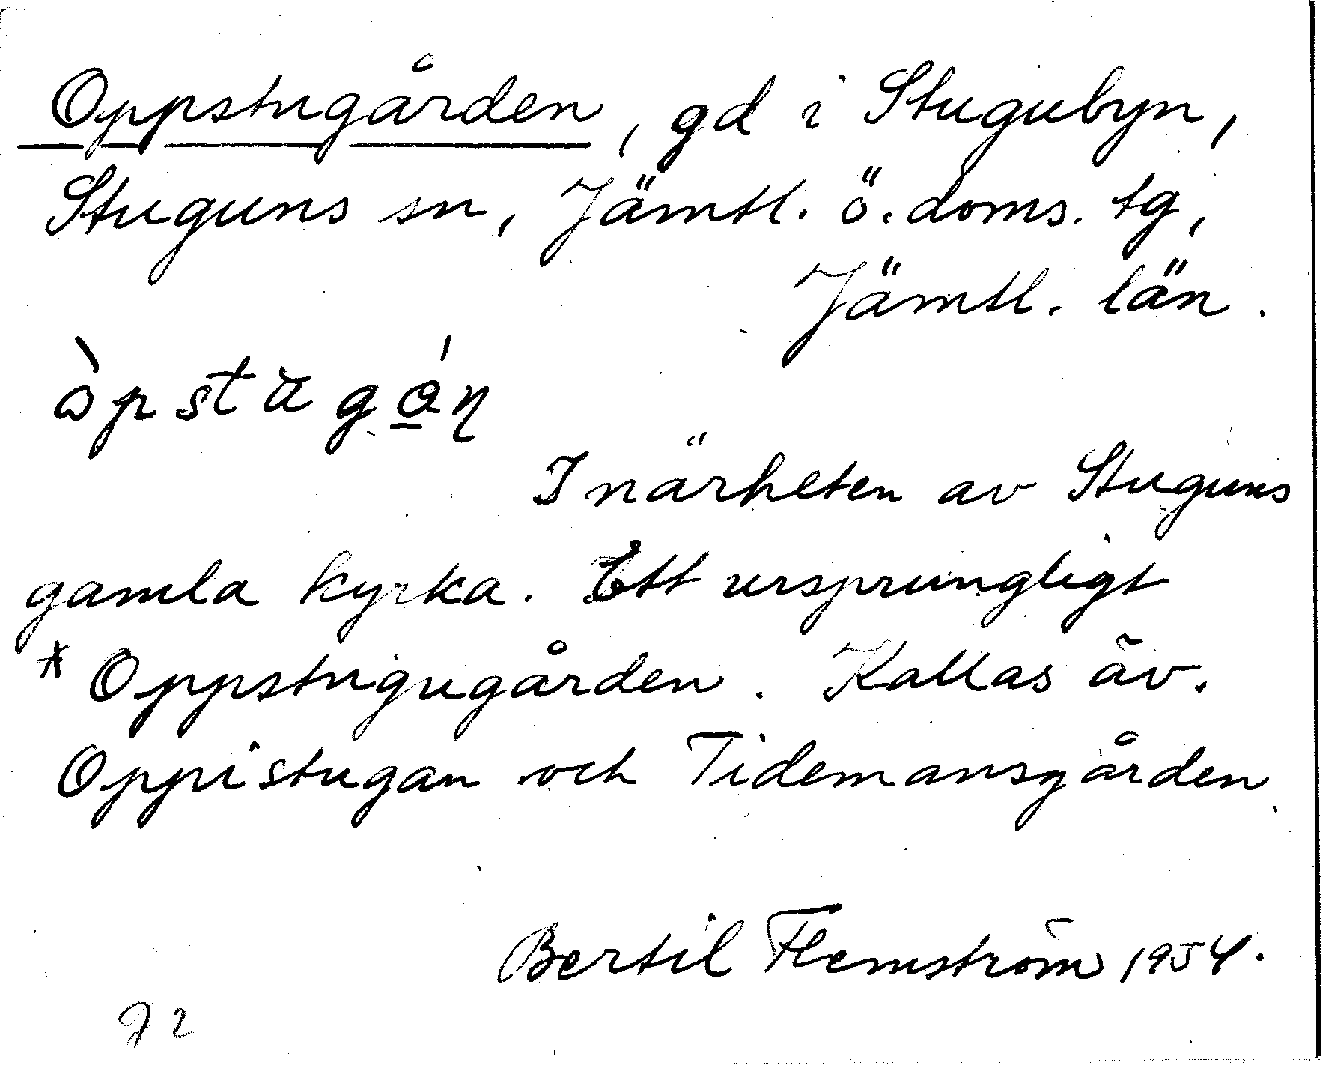 Oppstugården, gd i Stugubyn,
Stuguns sn, Jämtl. ö. doms. tg,
Jämtl. län.
I närheten av Stuguns
gamla kyrka. Ett ursprungligt
* Oppstugugården. Kallas äv.
Oppistugan och Tidemansgården
Bertil Flemström 1954.